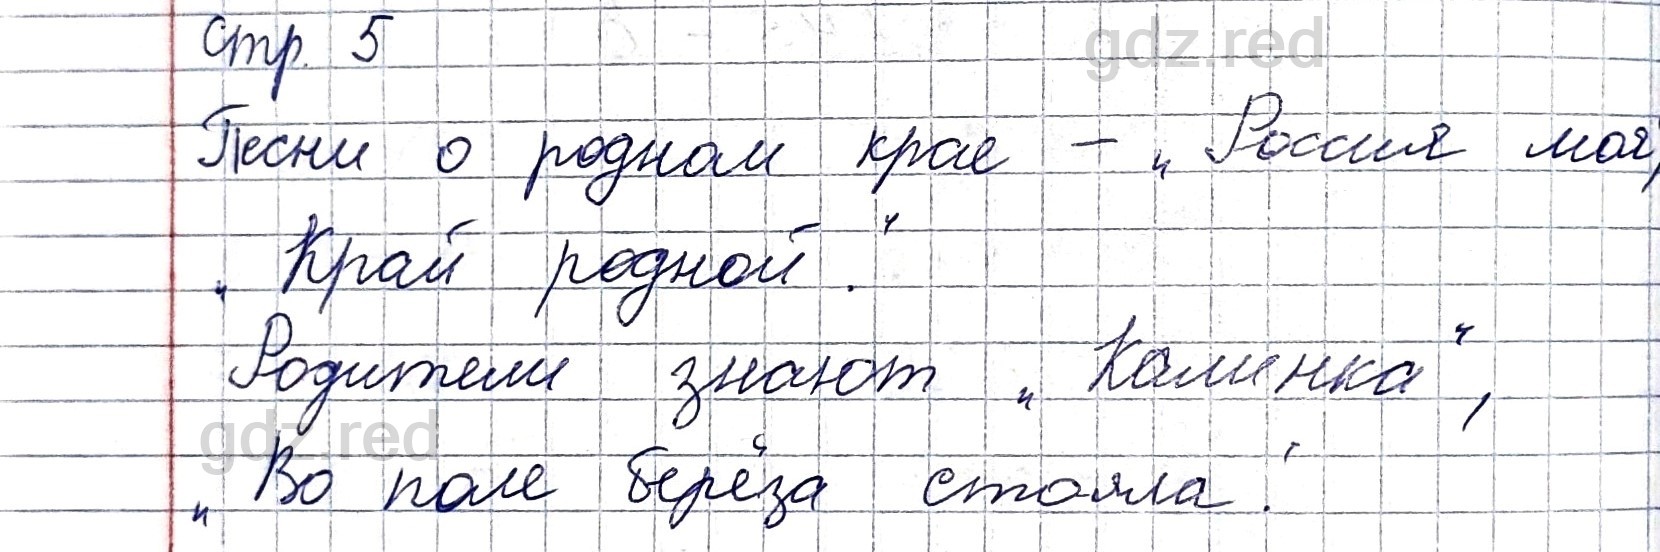 стр. 5
gdz.red
Песни о родном крае – „Россия моя,
„Край родной“.
Родители знают „Калинка“,
gdz.red
„Во поле берёза стояла“.